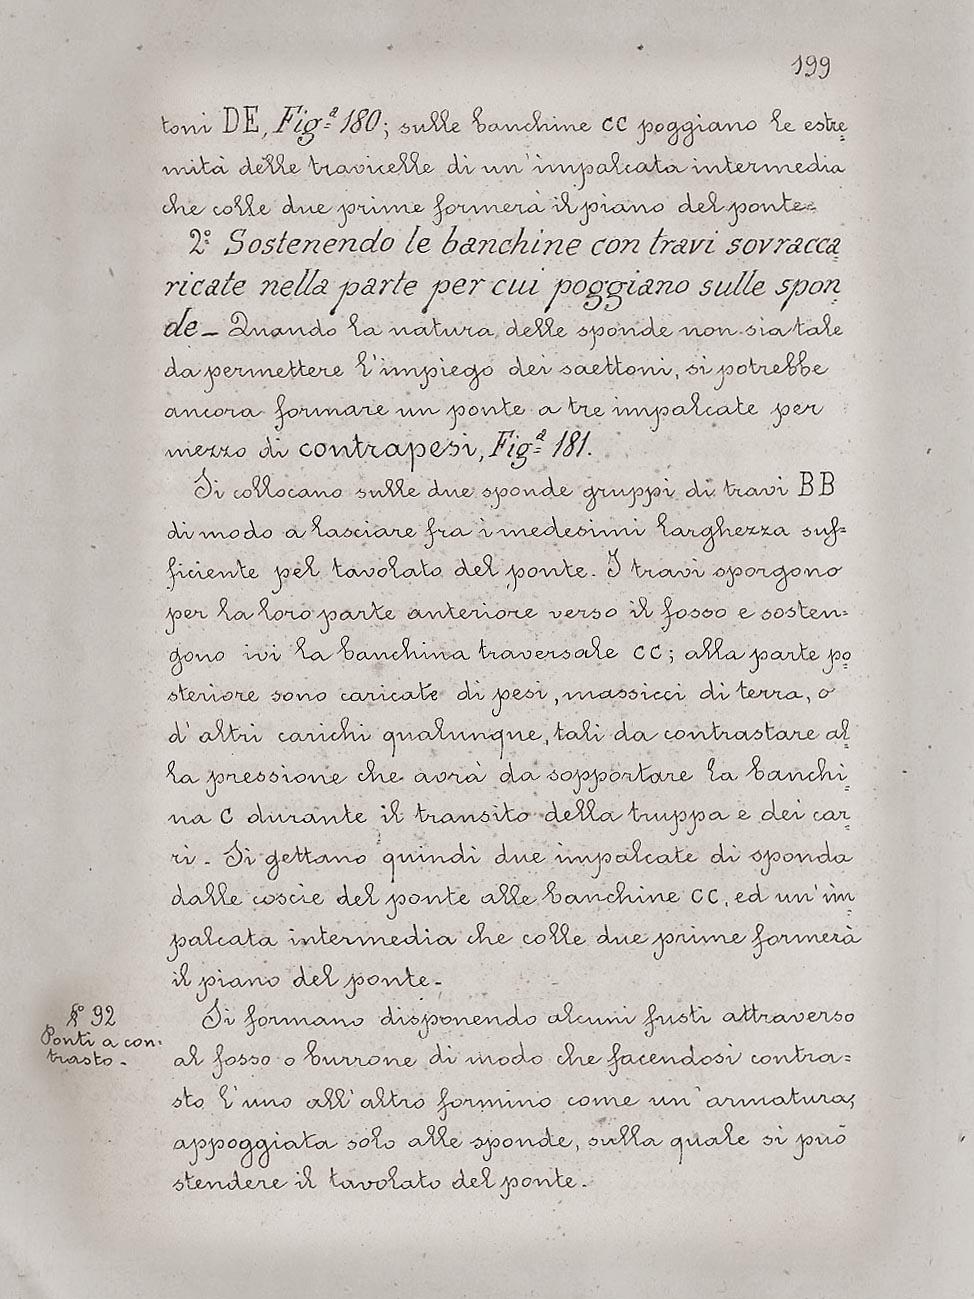 199
toni DE, Fig.ª 180; sulle banchine CC poggiano le estre=
mità delle travicelle di un'impalcata intermedia
che colle due prime formerà il piano del ponte.
2.º Sostenendo le banchine con travi sovracca=
ricate nella parte per cui poggiano sulle spon=
de — Quando la natura delle sponde non sia tale
da permettere l'impiego dei saettoni, si potrebbe
ancora formare un ponte a tre impalcate per
mezzo di contrapesi, Fig.ª 181.
Si collocano sulle due sponde gruppi di travi BB
di modo a lasciare fra i medesimi larghezza suf=
ficiente pel tavolato del ponte. I travi sporgono
per la loro parte anteriore verso il fosso e sosten=
gono ivi la banchina traversale CC; alla parte po=
steriore sono caricate di pesi, massicci di terra, o
d'altri carichi qualunque, tali da contrastare al=
la pressione che avrà da sopportare la banchi=
na C durante il transito della truppa e dei car=
ri. Si gettano quindi due impalcate di sponda
dalle coscie del ponte alle banchine CC, ed un'im=
palcata intermedia che colle due prime formerà
il piano del ponte.
§º 92
Ponti a con=
trasto.
Si formano disponendo alcuni fusti attraverso
al fosso o burrone di modo che facendosi contra=
sto l'uno all'altro formino come un'armatura,
appoggiata solo alle sponde, sulla quale si può
stendere il tavolato del ponte.